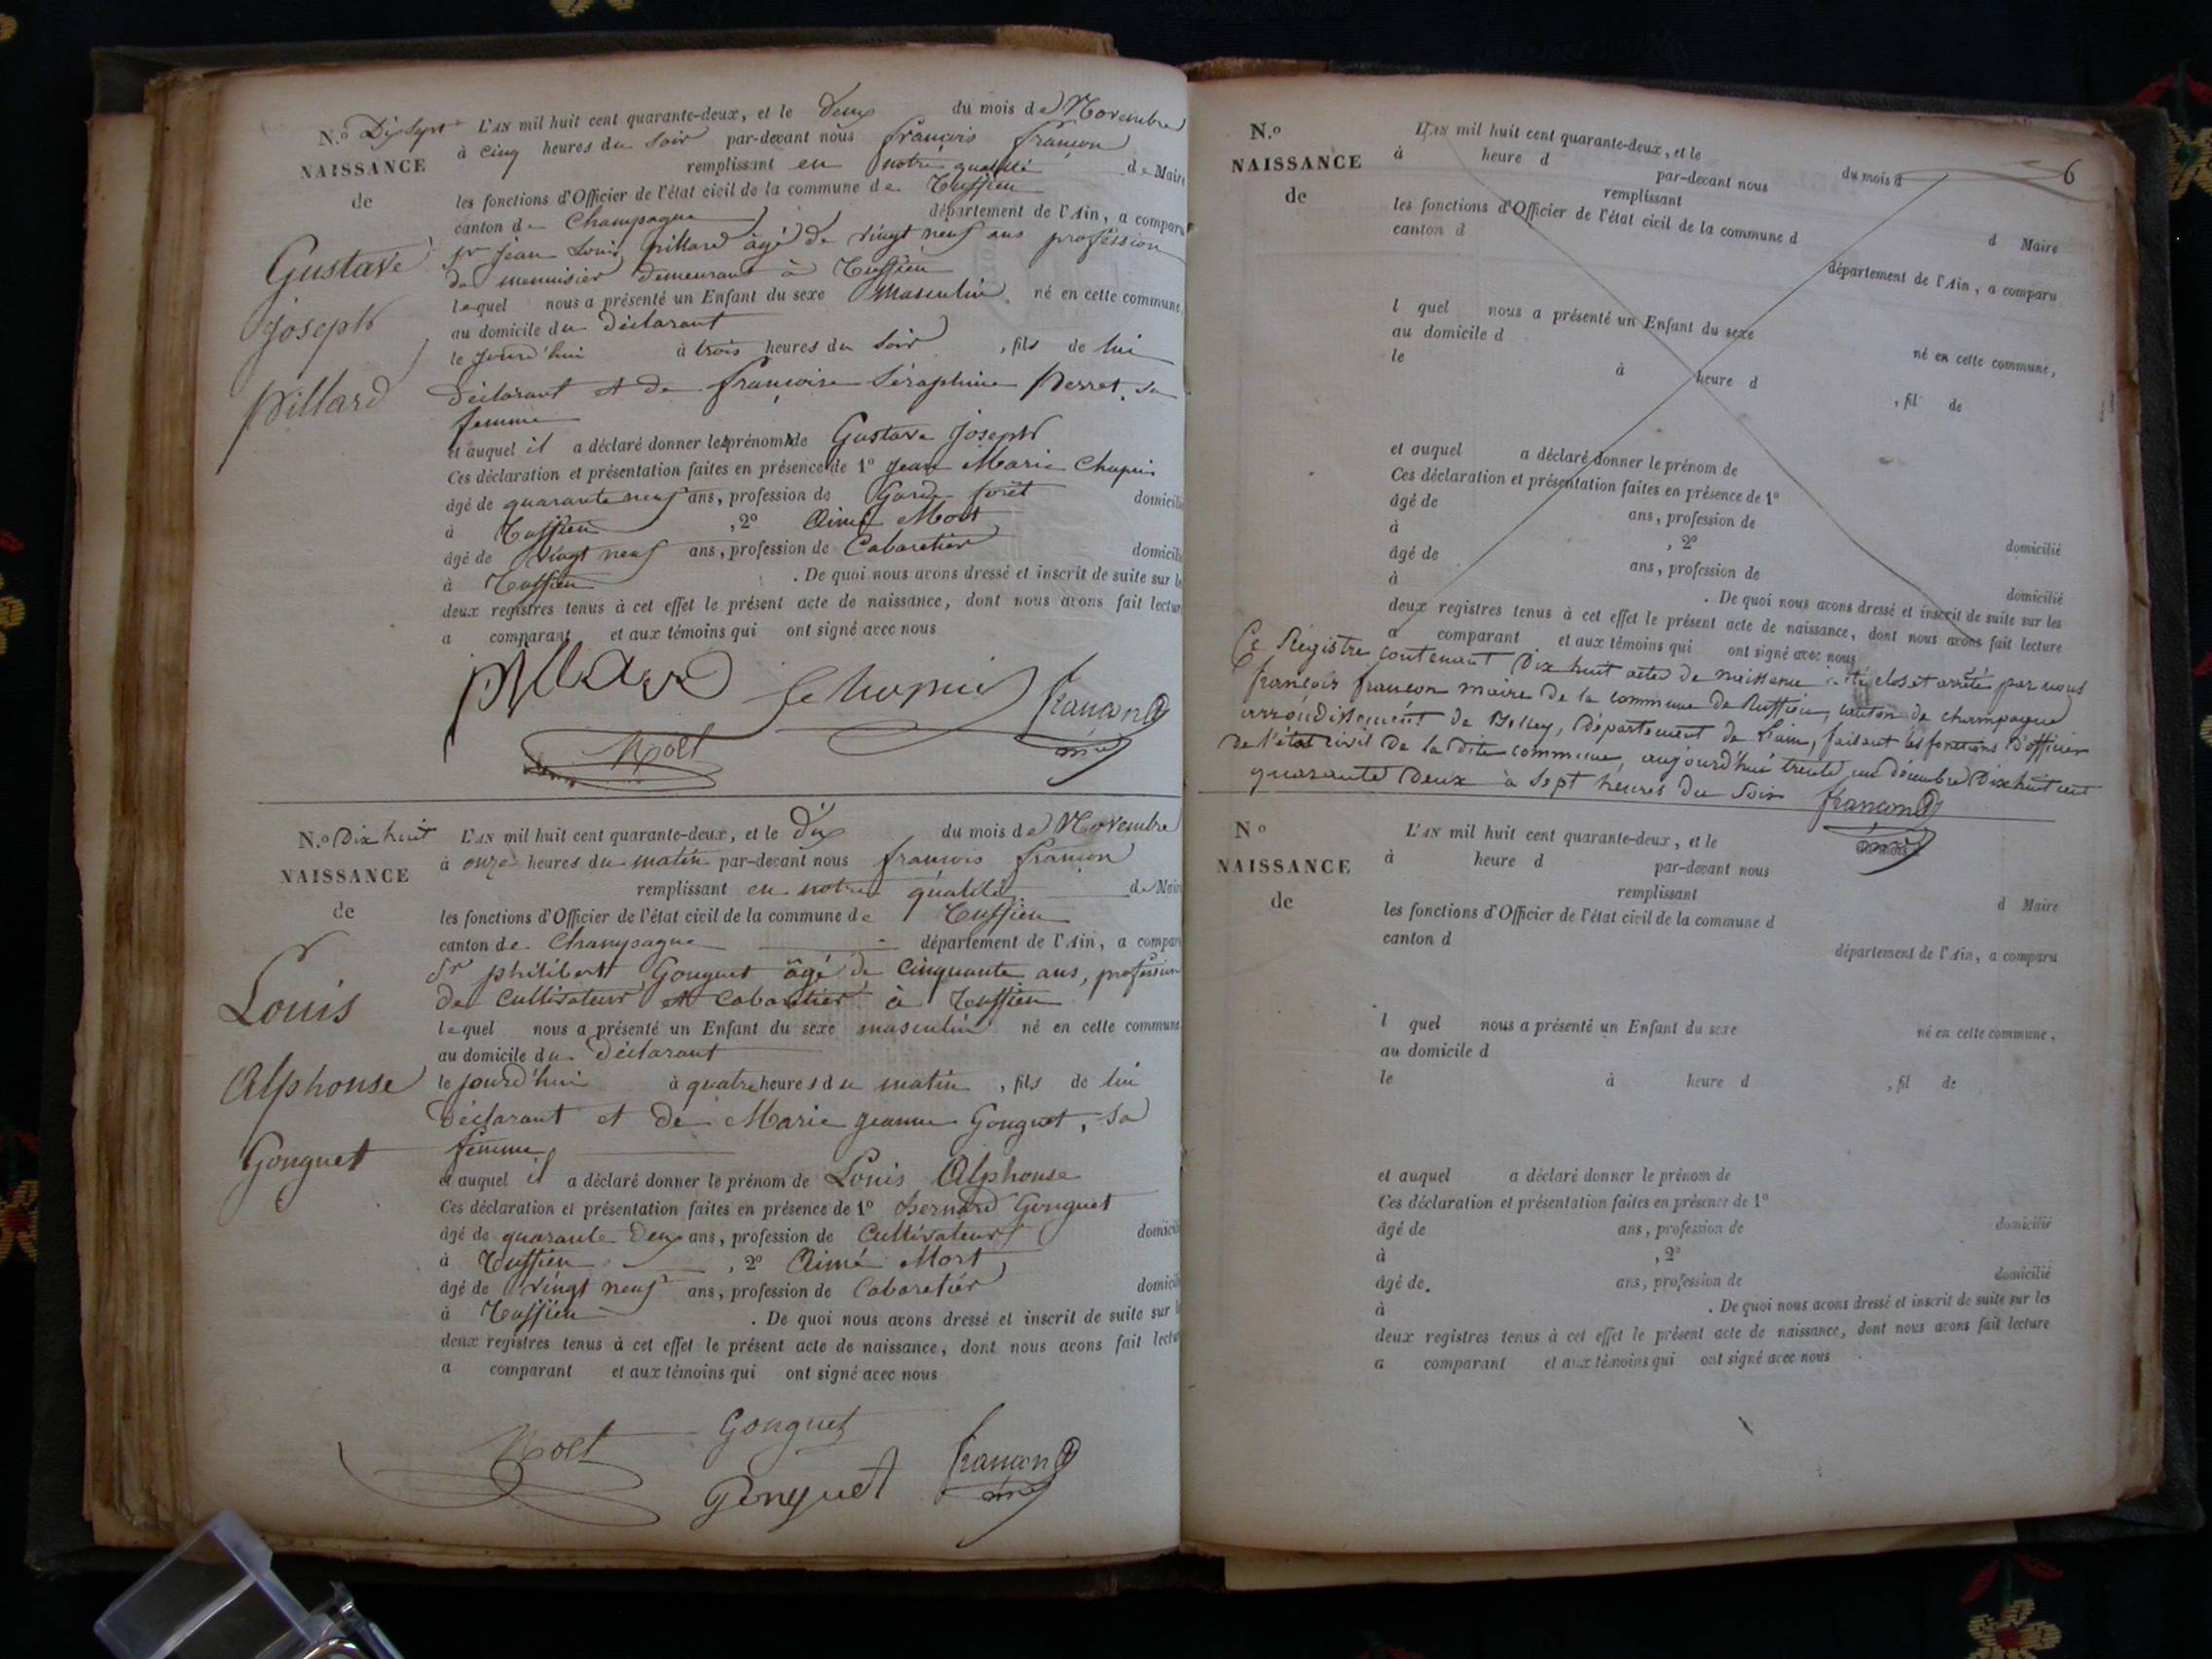 N.º Dix sept
NAISSANCE
de
Gustave
Joseph
Pillard
L'AN mil huit cent quarante-deux, et le deux du mois de Novembre
à cinq heures du soir par-devant nous françois françon
remplissant en notre qualité de Maire
les fonctions d'Officier de l'état civil de la commune de Ruffieu
canton de Champagne département de l'Ain, a comparu
Sr Jean Louis pillard âgé de vingt neuf ans profession
de menuisier demeurant à Ruffieu
lequel nous a présenté un Enfant du sexe masculin né en cette commune,
au domicile du déclarant
le jourd'hui à trois heures du soir, fils de lui
déclarant et de françoise Séraphine Perret, sa
femme
et auquel il a déclaré donner les prénoms de Gustave Joseph
Ces déclaration et présentation faites en présence de 1º Jean Marie Chapuis
âgé de quarante neuf ans, profession de Garde forêt domicilié
à Ruffieu, 2º Aimé Mort
âgé de vingt neuf ans, profession de Cabaretier domicilié
à Ruffieu. De quoi nous avons dressé et inscrit de suite sur les
deux registres tenus à cet effet le présent acte de naissance, dont nous avons fait lecture
a comparant et aux témoins qui ont signé avec nous
pillard Chapuis françon
Mort
N.º Dix huit
NAISSANCE
de
Louis
Alphonse
Gonguet
L'AN mil huit cent quarante-deux, et le dix du mois de Novembre
à onze heures du matin par-devant nous françois françon
remplissant en notre qualité de Maire
les fonctions d'Officier de l'état civil de la commune de Ruffieu
canton de Champagne département de l'Ain, a comparu
Sr philibert Gonguet âgé de cinquante ans, profession
de cultivateur et cabaretier à Ruffieu
lequel nous a présenté un Enfant du sexe masculin né en cette commune
au domicile du déclarant
le jourd'hui à quatre heures du matin, fils de lui
déclarant et de Marie jeanne Gonguet, sa
femme
et auquel il a déclaré donner le prénom de Louis Alphonse
Ces déclaration et présentation faites en présence de 1º Bernard Gonguet
âgé de quarante deux ans, profession de Cultivateur domicilié
à Ruffieu, 2º Aimé Mort
âgé de vingt neuf ans, profession de Cabaretier domicilié
à Ruffieu. De quoi nous avons dressé et inscrit de suite sur les
deux registres tenus à cet effet le présent acte de naissance, dont nous avons fait lecture
a comparant et aux témoins qui ont signé avec nous
Mort Gonguet françon
Gonguet
6
N.º
NAISSANCE
de
L'AN mil huit cent quarante-deux, et le du mois d
à heure d par-devant nous
remplissant d Maire
les fonctions d'Officier de l'état civil de la commune d
canton d département de l'Ain, a comparu
l quel nous a présenté un Enfant du sexe né en cette commune,
au domicile d
le à heure d , fil de
et auquel a déclaré donner le prénom de
Ces déclaration et présentation faites en présence de 1º
âgé de ans, profession de domicilié
à , 2º
âgé de ans, profession de domicilié
à . De quoi nous avons dressé et inscrit de suite sur les
deux registres tenus à cet effet le présent acte de naissance, dont nous avons fait lecture
a comparant et aux témoins qui ont signé avec nous
Ce Régistre contenant Dix huit actes de naissance a été clos et arrêté par nous
françois françon maire de la commune de Ruffieu, canton de champagne
arrondissement de Belley, département de L'ain, faisant les fonctions d'officier
de l'état civil de la dite commune, aujourd'hui trente un décembre Dix huit cent
quarante Deux à sept heures du soir françon
N º
NAISSANCE
de
L'AN mil huit cent quarante-deux, et le du mois d
à heure d par-devant nous
remplissant d Maire
les fonctions d'Officier de l'état civil de la commune d
canton d département de l'Ain, a comparu
l quel nous a présenté un Enfant du sexe né en cette commune,
au domicile d
le à heure d , fil de
et auquel a déclaré donner le prénom de
Ces déclaration et présentation faites en présence de 1º
âgé de ans, profession de domicilié
à , 2º
âgé de. ans, profession de domicilié
à . De quoi nous avons dressé et inscrit de suite sur les
deux registres tenus à cet effet le présent acte de naissance, dont nous avons fait lecture
a comparant et aux témoins qui ont signé avec nous